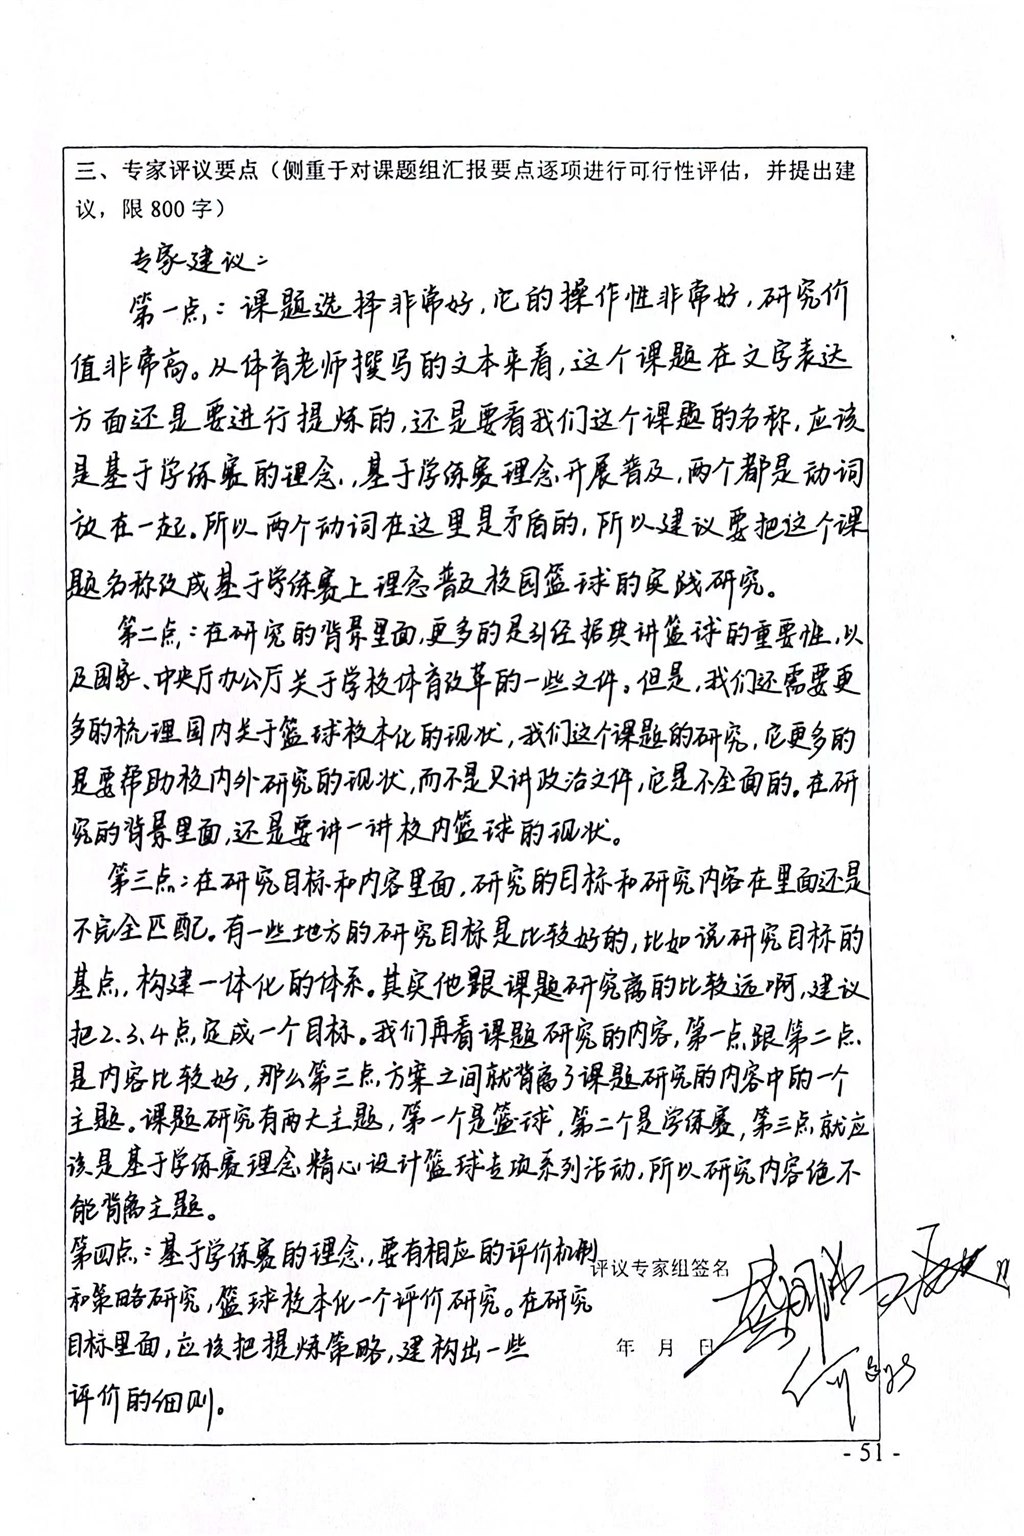 三、专家评议要点（侧重于对课题组汇报要点逐项进行可行性评估，并提出建
议，限 800 字）
专家建议：
第一点：课题选择非常好，它的操作性非常好，研究价
值非常高。从体育老师撰写的文本来看，这个课题在文字表达
方面还是要进行提炼的，还是要看我们这个课题的名称，应该
是基于学练赛的理念，基于学练赛理念开展普及，两个都是动词
放在一起。所以两个动词在这里是矛盾的，所以建议要把这个课
题名称改成基于学练赛上理念普及校园篮球的实践研究。
第二点：在研究的背景里面，更多的是引经据典讲篮球的重要性，以
及国家、中央厅办公厅关于学校体育改革的一些文件。但是，我们还需要更
多的梳理国内关于篮球校本化的现状，我们这个课题的研究，它更多的
是要帮助校内外研究的现状，而不是只讲政治文件，它是不全面的。在研
究的背景里面，还是要讲一讲校内篮球的现状。
第三点：在研究目标和内容里面，研究的目标和研究内容在里面还是
不完全匹配。有一些地方的研究目标是比较好的，比如说研究目标的
基点，构建一体化的体系。其实他跟课题研究离的比较远啊，建议
把2.3.4点，定成一个目标。我们再看课题研究的内容，第一点跟第二点
是内容比较好，那么第三点方案之间就背离了课题研究的内容中的一个
主题。课题研究有两大主题，第一个是篮球，第二个是学练赛，第三点就应
该是基于学练赛理念精心设计篮球专项系列活动，所以研究内容绝不
能背离主题。
第四点：基于学练赛的理念，要有相应的评价机制
和策略研究，篮球校本化一个评价研究。在研究
目标里面，应该把提炼策略，建构出一些
评价的细则。
评议专家组签名
年 月 日
- 51 -